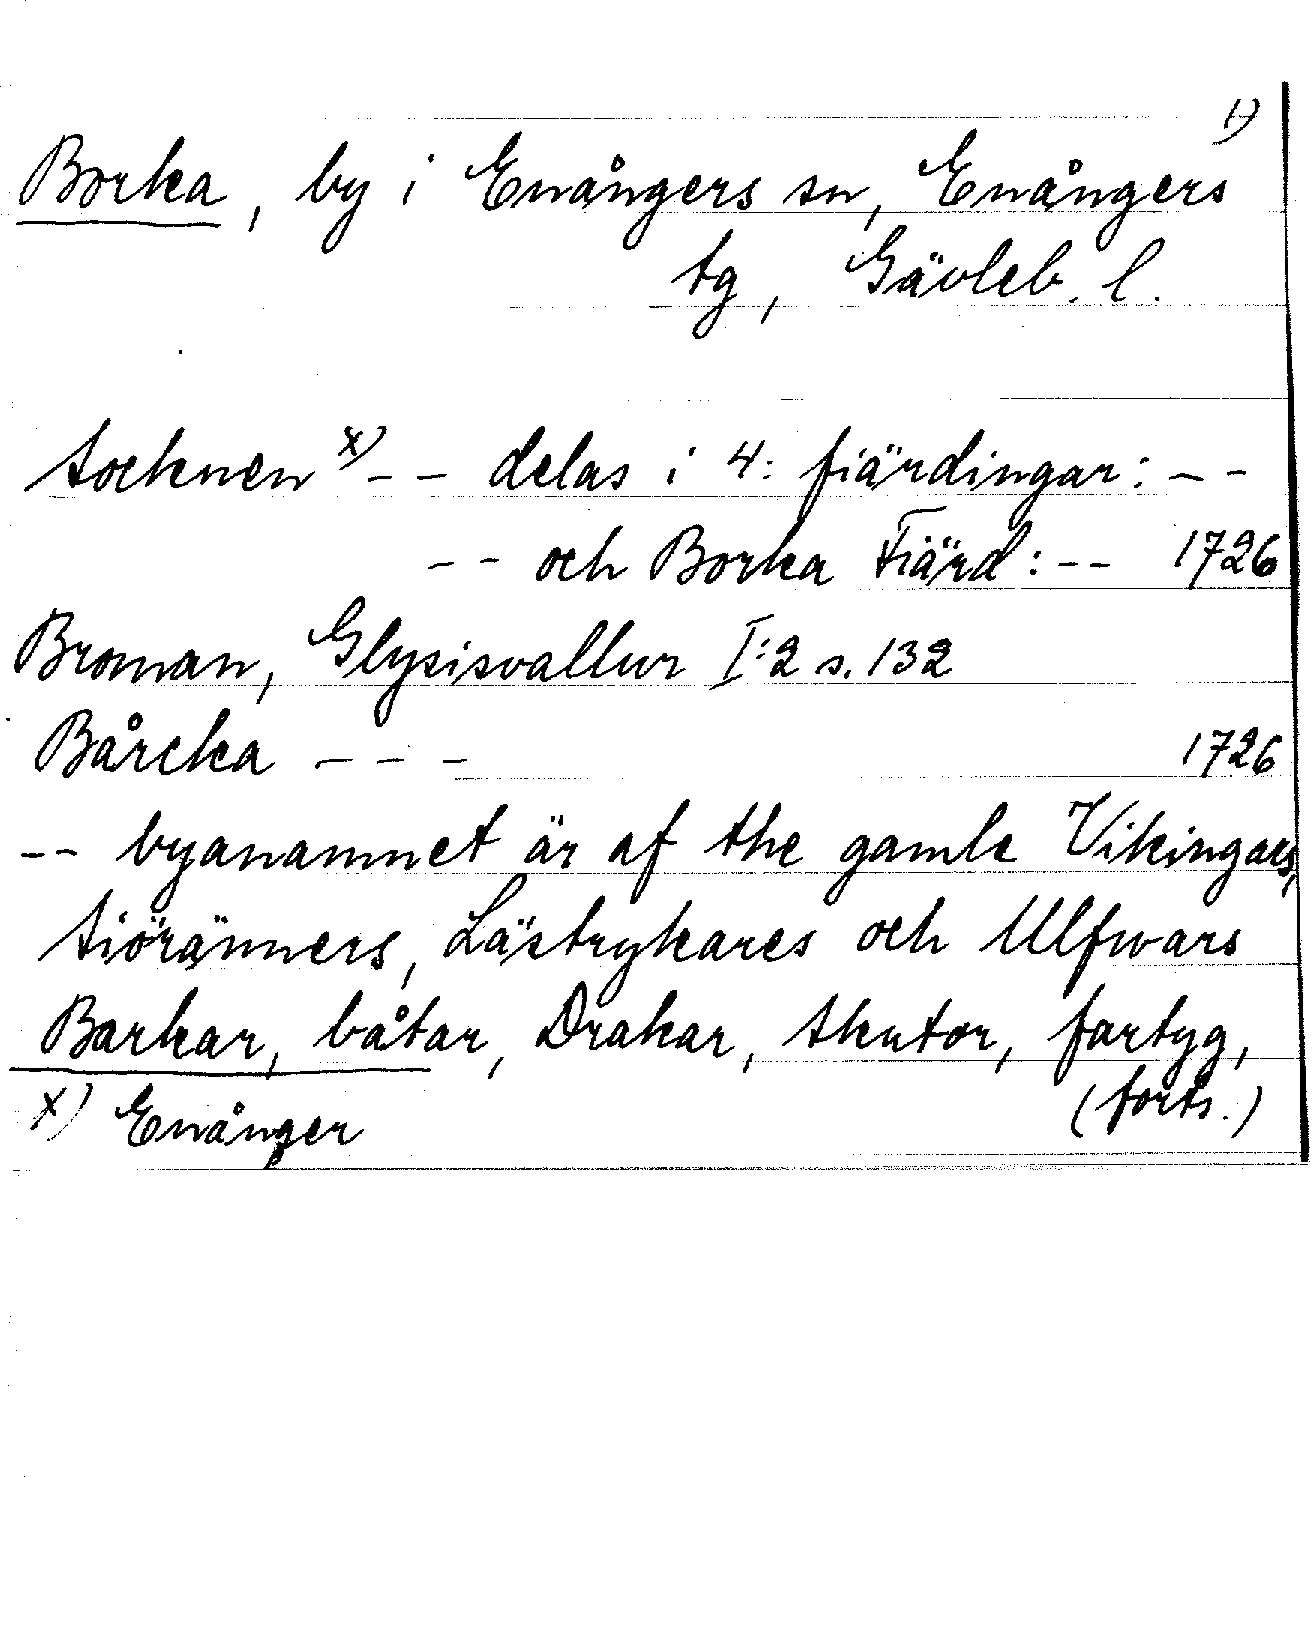 1)
Borka, by i Enångers sn, Enångers
tg, Gävleb. l.
Socknen x) - - delas i 4: fiärdingar: - -
- - och Borka Fiärd: - - 1726
Broman, Glysisvallur I:2 s. 132
Bårcka - - - 1726
- - byanamnet är af the gamle Vikingars,
Siöränners, Lästrykares och Ulfwars
Barkar, båtar, Drakar, Skutor, fartyg,
(forts.)
x) Enånger